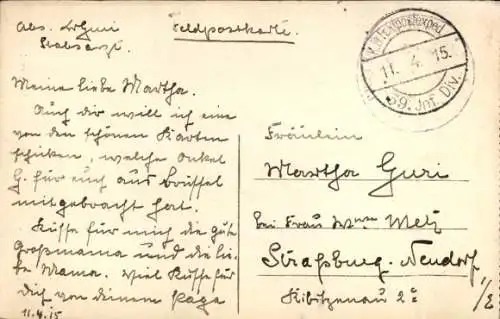 Abs. Dr Guri
Stabsarzt.
Feldpostkarte.
Meine liebe Martha.
Auch dir will ich eine
von den schönen Karten
schicken, welche Onkel
G. für euch aus Brüssel
mitgebracht hat.
Küsse für mich die gute
Großmama und die lie-
be Mama. Viel Küsse für
Dich von deinem Papa
11.4.15
11. 4. 15.
39. Inf. Div.
Fräulein
Martha Guri
bei Frau Wwe Metz
Straßburg-Neudorf
Kibitzenau 2a
i/E